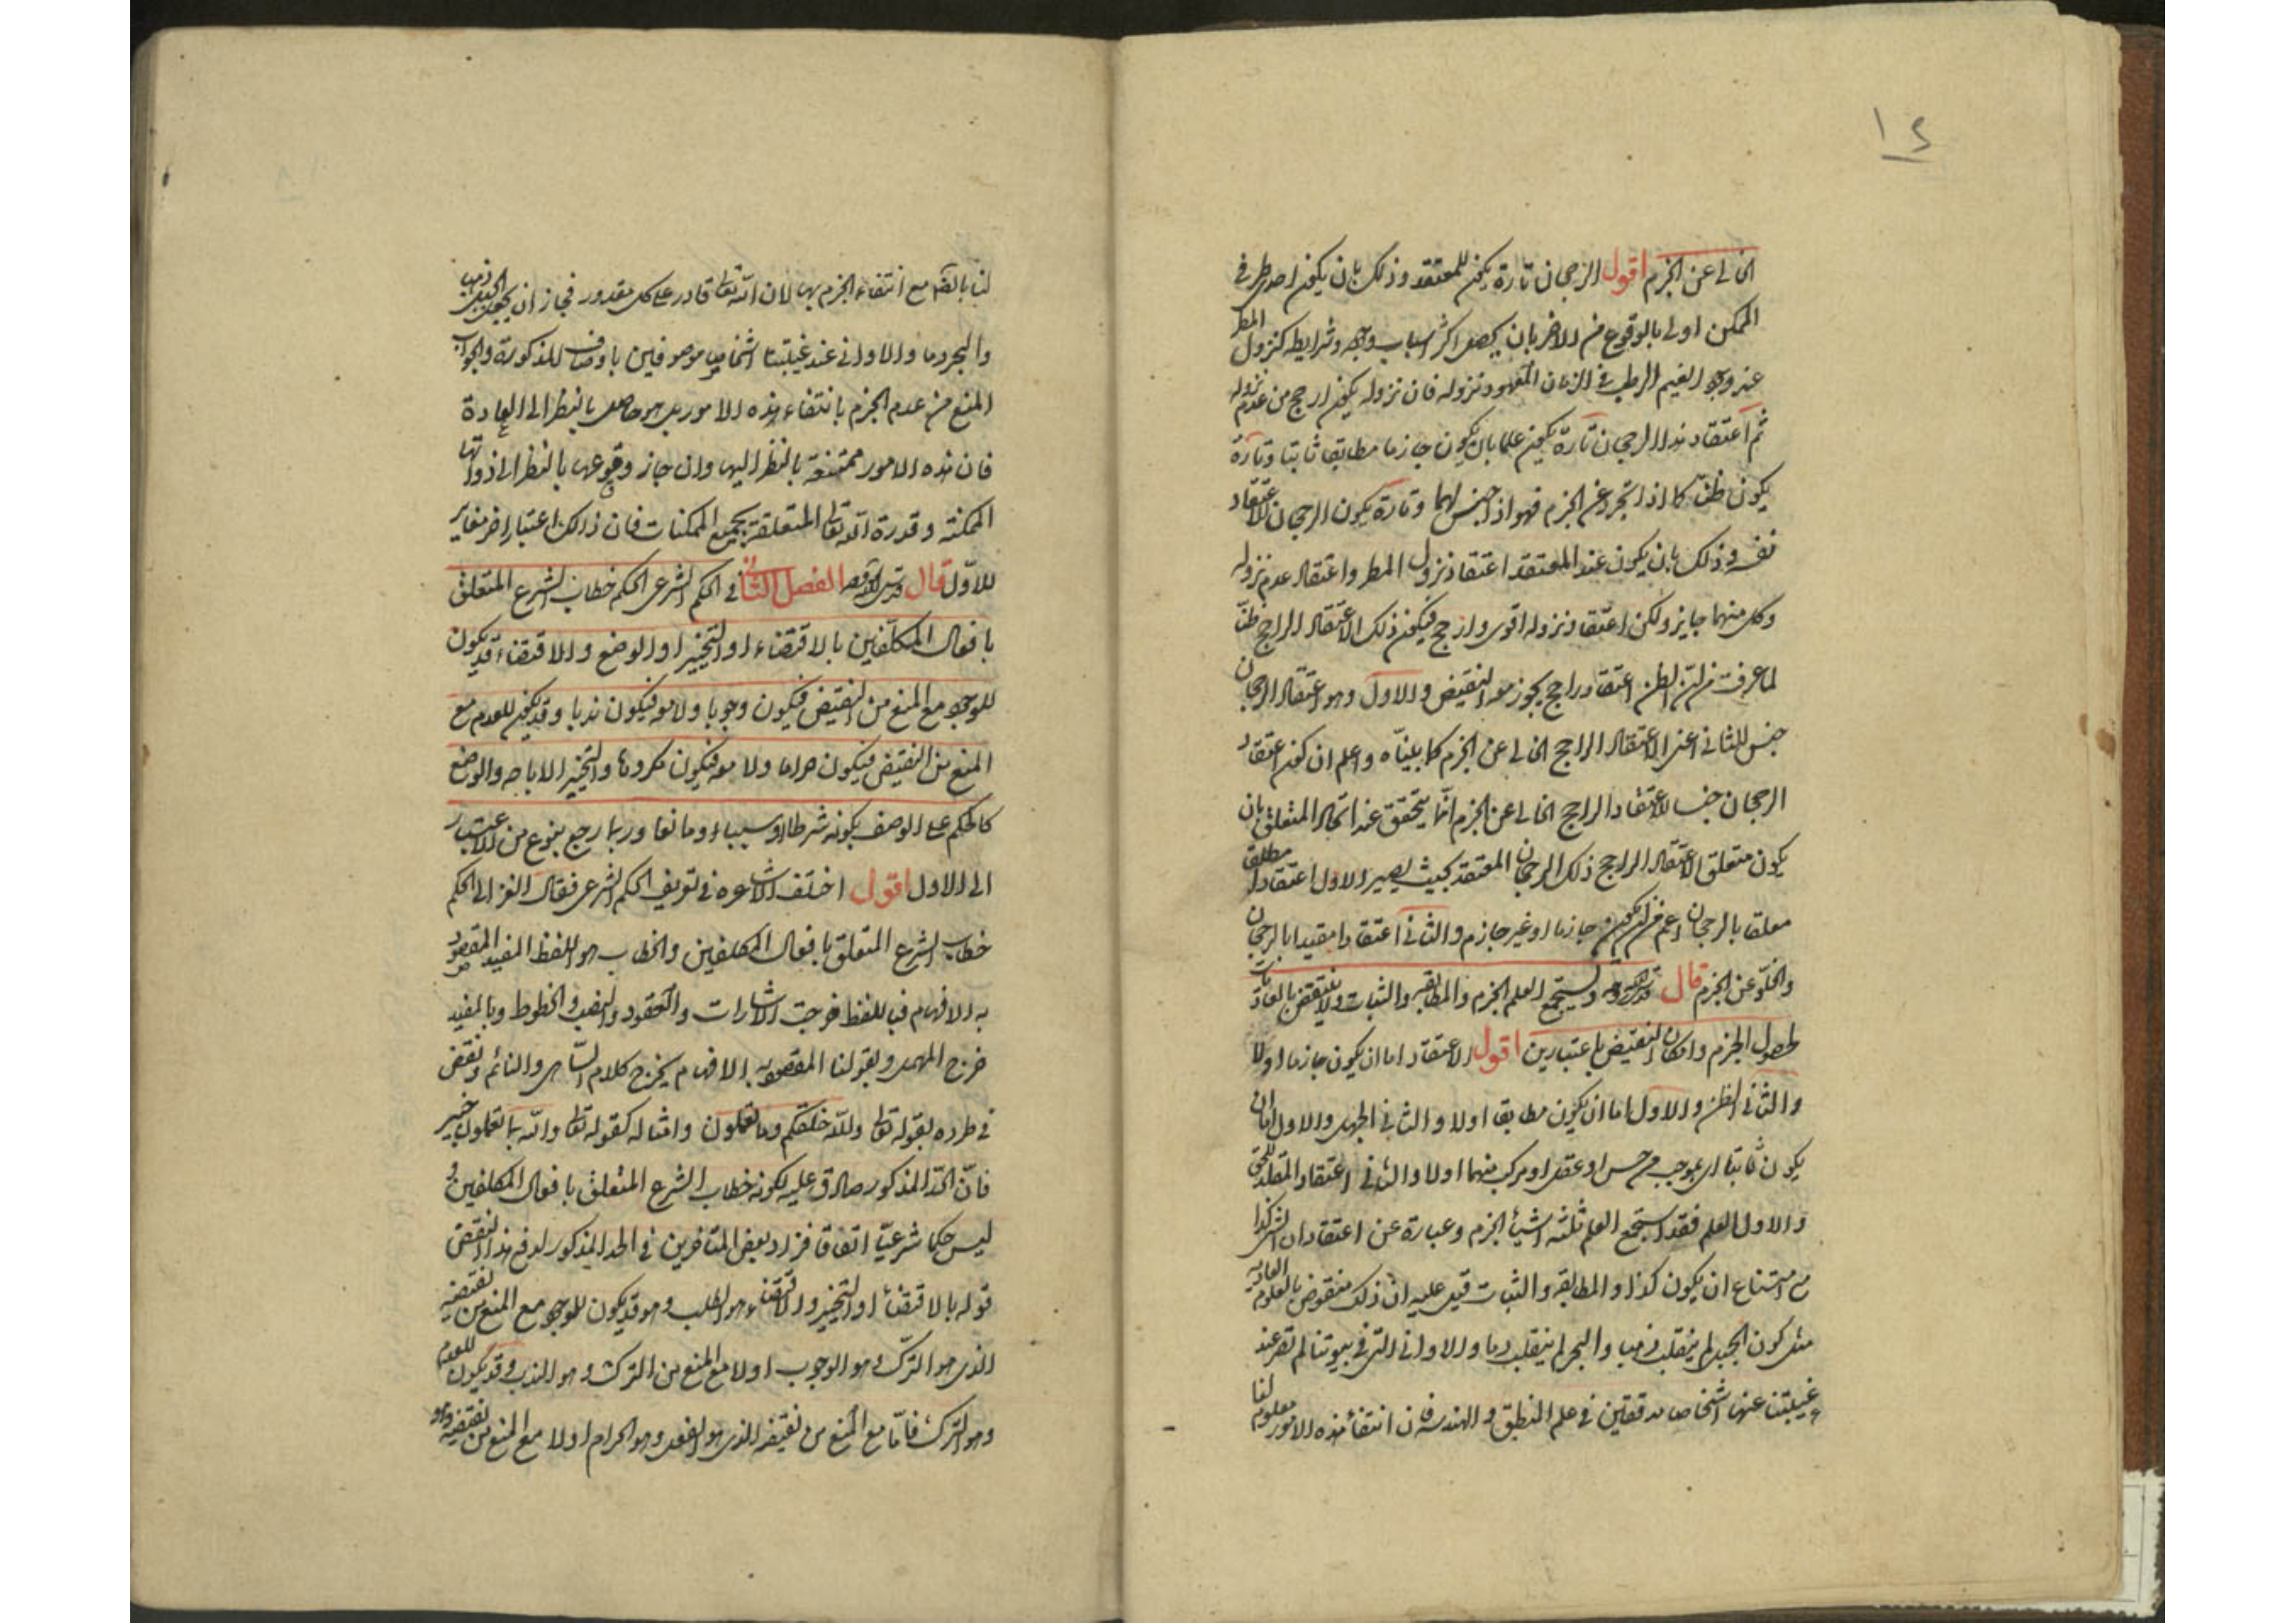 ١٤
الخالي عن الجزم اقول الرجحان تارة يكون للمعتقد وذلك بان يكون احد طرفي
الممكن اولى بالوقوع من الاخر بان يحصل اكثر اسباب وجوده وشرايطه كنزول المطر
عند وجود الغيم الرطب في الزمان المعهود نزوله فان نزوله يكون ارجح من عدم نزوله
ثم اعتقاد هذا الرجحان تارة يكون علما بان يكون جازما مطابقا ثابتا وتارة
يكون ظنّا كما اذا تجرد عن الجزم فهو اذا جنس لهما وتارة يكون الرجحان للاعتقاد
نفسه وذلك بان يكون عند المعتقد اعتقاد نزول المطر واعتقاد عدم نزوله
وكل منهما جايز ولكن اعتقاد نزوله اقوى وارجح فيكون ذلك الاعتقاد الراجح ظنّا
لما عرفت من ان الظن اعتقاد راجح يجوز معه النقيض والاول وهو اعتقاد الرجحان
جنس للثاني اعني الاعتقاد الراجح الخالي عن الجزم كما بيناه واعلم ان كون اعتقاد
الرجحان جنسا للاعتقاد الراجح الخالي عن الجزم انّما يتحقق عند اتحاد المتعلق بان
يكون متعلق الاعتقاد الراجح ذلك الرجحان المعتقد بحيث يصير الاول اعتقادا مطلقا
معلقا بالرجحان اعم من ان يكون جازما او غير جازم والثاني اعتقادا مقيدا بالرجحان
والخلّو عن الجزم قال قدس الله روحه ويستجمع العلم الجزم والمطابقة والثبات ولا ينتقض بالعاديات
لحصول الجزم وامكان النقيض باعتبارين اقول الاعتقاد اما ان يكون جازما اولا
والثاني الظن والاول اما ان يكون مطابقا اولا والثاني الجهل والاول اما ان
يكون ثابتا اى بموجب من حس او عقل او مركب منهما اولا والثاني اعتقاد المقلد للحق
والاول العلم فقد استجمع العلم ثلثة اشياء الجزم وعبارة عن اعتقاد ان الشئ كذا
مع امتناع ان يكون كذا والمطابقه والثبات قيل عليه ان ذلك منقوض بالعلوم العاديه
مثل كون الجبل لم ينقلب ذهبا والبحر لم ينقلب دما والاواني التي في بيوتنا لم تصر عند
غيبتنا عنها اشخاصا مدققين في علم المنطق والهندسه فان انتفاء هذه الامور معلوم لنا
لنا بالضرورة مع انتفاء الجزم بها لان الله تعالى قادر على كل مقدور فجاز ان يجعل الجبل ذهبا
والبحر دما والاواني عند غيبتنا اشخاص موصوفين باوصاف المذكورة والجواب
المنع من عدم الجزم بانتفاء هذه الامور بل هو حاصل بالنظر الى العادة
فان هذه الامور ممتنعة بالنظر اليها وان جاز وقوعها بالنظر الى ذواتها
الممكنة وقدرة الله تعالى المتعلقة بجميع الممكنات فان ذلك اعتبار اخر مغاير
للاوّل قال قدس الله روحه الفصل الثاني في الحكم الشرعى الحكم خطاب الشرع المتعلق
بافعال المكلّفين بالاقتضاء او التخيير او الوضع والاقتضاء قد يكون
للوجود مع المنع من النقيض فيكون وجوبا ولا معه فيكون ندبا وقد يكون للعدم مع
المنع من النقيض فيكون حراما ولا معه فيكون مكروها والتخيير الاباحه والوضع
كالحكم على الوصف بكونه شرطا او سببا او مانعا وربما رجع بنوع من الاعتبار
الى الاول اقول اختلف الاشاعره في تعريف الحكم الشرعى فقال الغزالى الحكم
خطاب الشرع المتعلق بافعال المكلفين والخطاب هو اللفظ المفيد المقصود
به الافهام فباللفظ خرجت الاشارات والعقود والنصب والخطوط وبالمفيد
خرج المهمل وبقولنا المقصود به الافهام يخرج كلام السّاهى والنائم ونقض
في طرده بقوله تعالى والله خلقكم وما تعملون وامثاله كقوله تعالى والله بما تعملون خبير
فانّ الحدّ المذكور صادق عليه لكونه خطاب الشرع المتعلق بافعال المكلفين و
ليس حكما شرعيّا اتفاقا فزاد بعض المتاخرين في الحد المذكور لدفع هذا النقض
قوله بالاقتضاء او التخيير والاقتضاء هو الطلب وهو قد يكون للوجود مع المنع من نقيضه
الذى هو الترك وهو الوجوب اولا مع المنع من الترك وهو الندب وقد يكون للعدم
وهو الترك فامّا مع المنع من نقيضه الذى هو الفعل وهو الحرام اولا مع المنع من نقيضه وهو